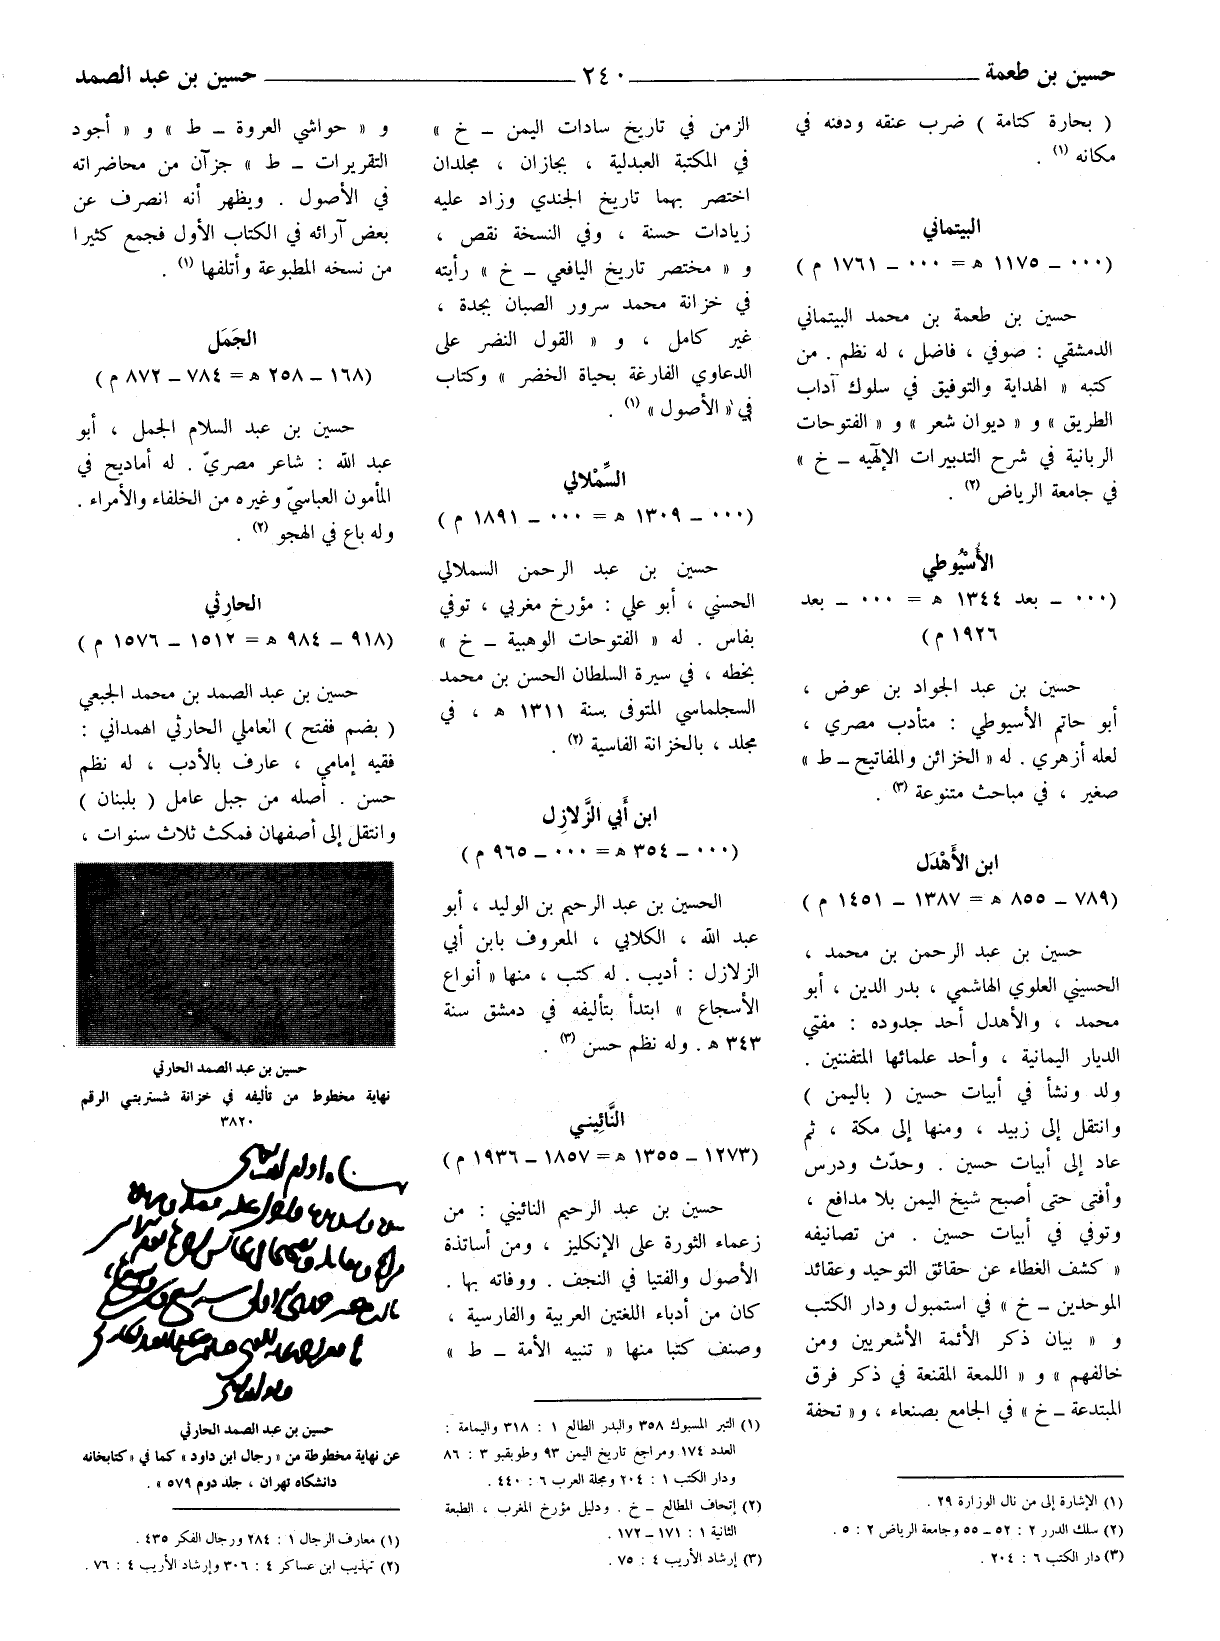 حسين بن طعمة ـــــ ٢٤٠ ـــــ حسين بن عبد الصمد
( بحارة كتامة ) ضرب عنقه ودفنه في
مكانه (١) .
البيتماني
(٠٠٠ ـ ١١٧٥ ه = ٠٠٠ ـ ١٧٦١ م )
حسين بن طعمة بن محمد البيتماني
الدمشقي : صوفي ، فاضل ، له نظم . من
كتبه « الهداية والتوفيق في سلوك آداب
الطريق » و « ديوان شعر » و « الفتوحات
الربانية في شرح التدبيرات الإلٓهيه ـ خ »
في جامعة الرياض (٢) .
الأُسْيُوطي
(٠٠٠ ـ بعد ١٣٤٤ ه = ٠٠٠ ـ بعد
١٩٢٦ م )
حسين بن عبد الجواد بن عوض ،
أبو حاتم الأسيوطي : متأدب مصري ،
لعله أزهري . له « الخزائن والمفاتيح ـ ط »
صغير ، في مباحث متنوعة (٣) .
ابن الأَهْدَل
(٧٨٩ ـ ٨٥٥ ه = ١٣٨٧ ـ ١٤٥١ م )
حسين بن عبد الرحمن بن محمد ،
الحسيني العلوي الهاشمي ، بدر الدين ، أبو
محمد ، والأهدل أحد جدوده : مفتي
الديار اليمانية ، وأحد علمائها المتفننين .
ولد ونشأ في أبيات حسين ( باليمن )
وانتقل إلى زبيد ، ومنها إلى مكة ، ثم
عاد إلى أبيات حسين . وحدّث ودرس
وأفتى حتى أصبح شيخ اليمن بلا مدافع ،
وتوفي في أبيات حسين . من تصانيفه
« كشف الغطاء عن حقائق التوحيد وعقائد
الموحدين ـ خ » في استمبول ودار الكتب
و « بيان ذكر الأئمة الأشعريين ومن
خالفهم » و « اللمعة المقنعة في ذكر فرق
المبتدعة ـ خ » في الجامع بصنعاء ، و« تحفة
(١) الإشارة إلى من نال الوزارة ٢٩ .
(٢) سلك الدرر ٢ : ٥٢ ـ ٥٥ وجامعة الرياض ٢ : ٥ .
(٣) دار الكتب ٦ : ٢٠٤ .
الزمن في تاريخ سادات اليمن ـ خ »
في المكتبة العبدلية ، بجازان ، مجلدان
اختصر بهما تاريخ الجندي وزاد عليه
زيادات حسنة ، وفي النسخة نقص ،
و « مختصر تاريخ اليافعي ـ خ » رأيته
في خزانة محمد سرور الصبان بجدة ،
غير كامل ، و « القول النضر على
الدعاوي الفارغة بحياة الخضر » وكتاب
في « الأصول » (١) .
السِّمْلالي
(٠٠٠ ـ ١٣٠٩ ه = ٠٠٠ ـ ١٨٩١ م )
حسين بن عبد الرحمن السملالي
الحسني ، أبو علي : مؤرخ مغربي ، توفي
بفاس . له « الفتوحات الوهبية ـ خ »
بخطه ، في سيرة السلطان الحسن بن محمد
السجلماسي المتوفى سنة ١٣١١ ه ، في
مجلد ، بالخزانة الفاسية (٢) .
ابن أَبي الزَّلازِل
(٠٠٠ ـ ٣٥٤ ه = ٠٠٠ ـ ٩٦٥ م )
الحسين بن عبد الرحيم بن الوليد ، أبو
عبد الله ، الكلابي ، المعروف بابن أبي
الزلازل : أديب . له كتب ، منها « أنواع
الأسجاع » ابتدأ بتأليفه في دمشق سنة
٣٤٣ ه . وله نظم حسن (٣) .
النَّائِيني
(١٢٧٣ ـ ١٣٥٥ ه = ١٨٥٧ ـ ١٩٣٦ م )
حسين بن عبد الرحيم النائيني : من
زعماء الثورة على الإنكليز ، ومن أساتذة
الأصول والفتيا في النجف . ووفاته بها .
كان من أدباء اللغتين العربية والفارسية ،
وصنف كتبا منها « تنبيه الأمة ـ ط »
(١) التبر المسبوك ٣٥٨ والبدر الطالع ١ : ٣١٨ واليمامة :
العدد ١٧٤ ومراجع تاريخ اليمن ٩٣ وطوبقبو ٣ : ٨٦
ودار الكتب ١ : ٢٠٤ ومجلة العرب ٦ : ٤٤٠ .
(٢) إتحاف المطالع ـ خ . ودليل مؤرخ المغرب ، الطبعة
الثانية ١ : ١٧١ ـ ١٧٢ .
(٣) إرشاد الأريب ٤ : ٧٥ .
و « حواشي العروة ـ ط » و « أجود
التقريرات ـ ط » جزآن من محاضراته
في الأصول . ويظهر أنه انصرف عن
بعض آرائه في الكتاب الأول فجمع كثيرا
من نسخه المطبوعة وأتلفها (١) .
الجَمَل
(١٦٨ ـ ٢٥٨ ه = ٧٨٤ ـ ٨٧٢ م )
حسين بن عبد السلام الجمل ، أبو
عبد الله : شاعر مصريّ . له أماديح في
المأمون العباسيّ وغيره من الخلفاء والأمراء .
وله باع في الهجو (٢) .
الحارِثي
(٩١٨ ـ ٩٨٤ ه = ١٥١٢ ـ ١٥٧٦ م )
حسين بن عبد الصمد بن محمد الجبعي
( بضم ففتح ) العاملي الحارثي الهمداني :
فقيه إمامي ، عارف بالأدب ، له نظم
حسن . أصله من جبل عامل ( بلبنان )
وانتقل إلى أصفهان فمكث ثلاث سنوات ،
حسين بن عبد الصمد الحارثي
نهاية مخطوط من تأليفه في خزانة شستربتي الرقم
٣٨٢٠
حسين بن عبد الصمد الحارثي
عن نهاية مخطوطة من « رجال ابن داود » كما في « كتابخانه
دانشكاه تهران ، جلد دوم ٥٧٩ » .
(١) معارف الرجال ١ : ٢٨٤ ورجال الفكر ٤٣٥ .
(٢) تهذيب ابن عساكر ٤ : ٣٠٦ وإرشاد الأريب ٤ : ٧٦ .